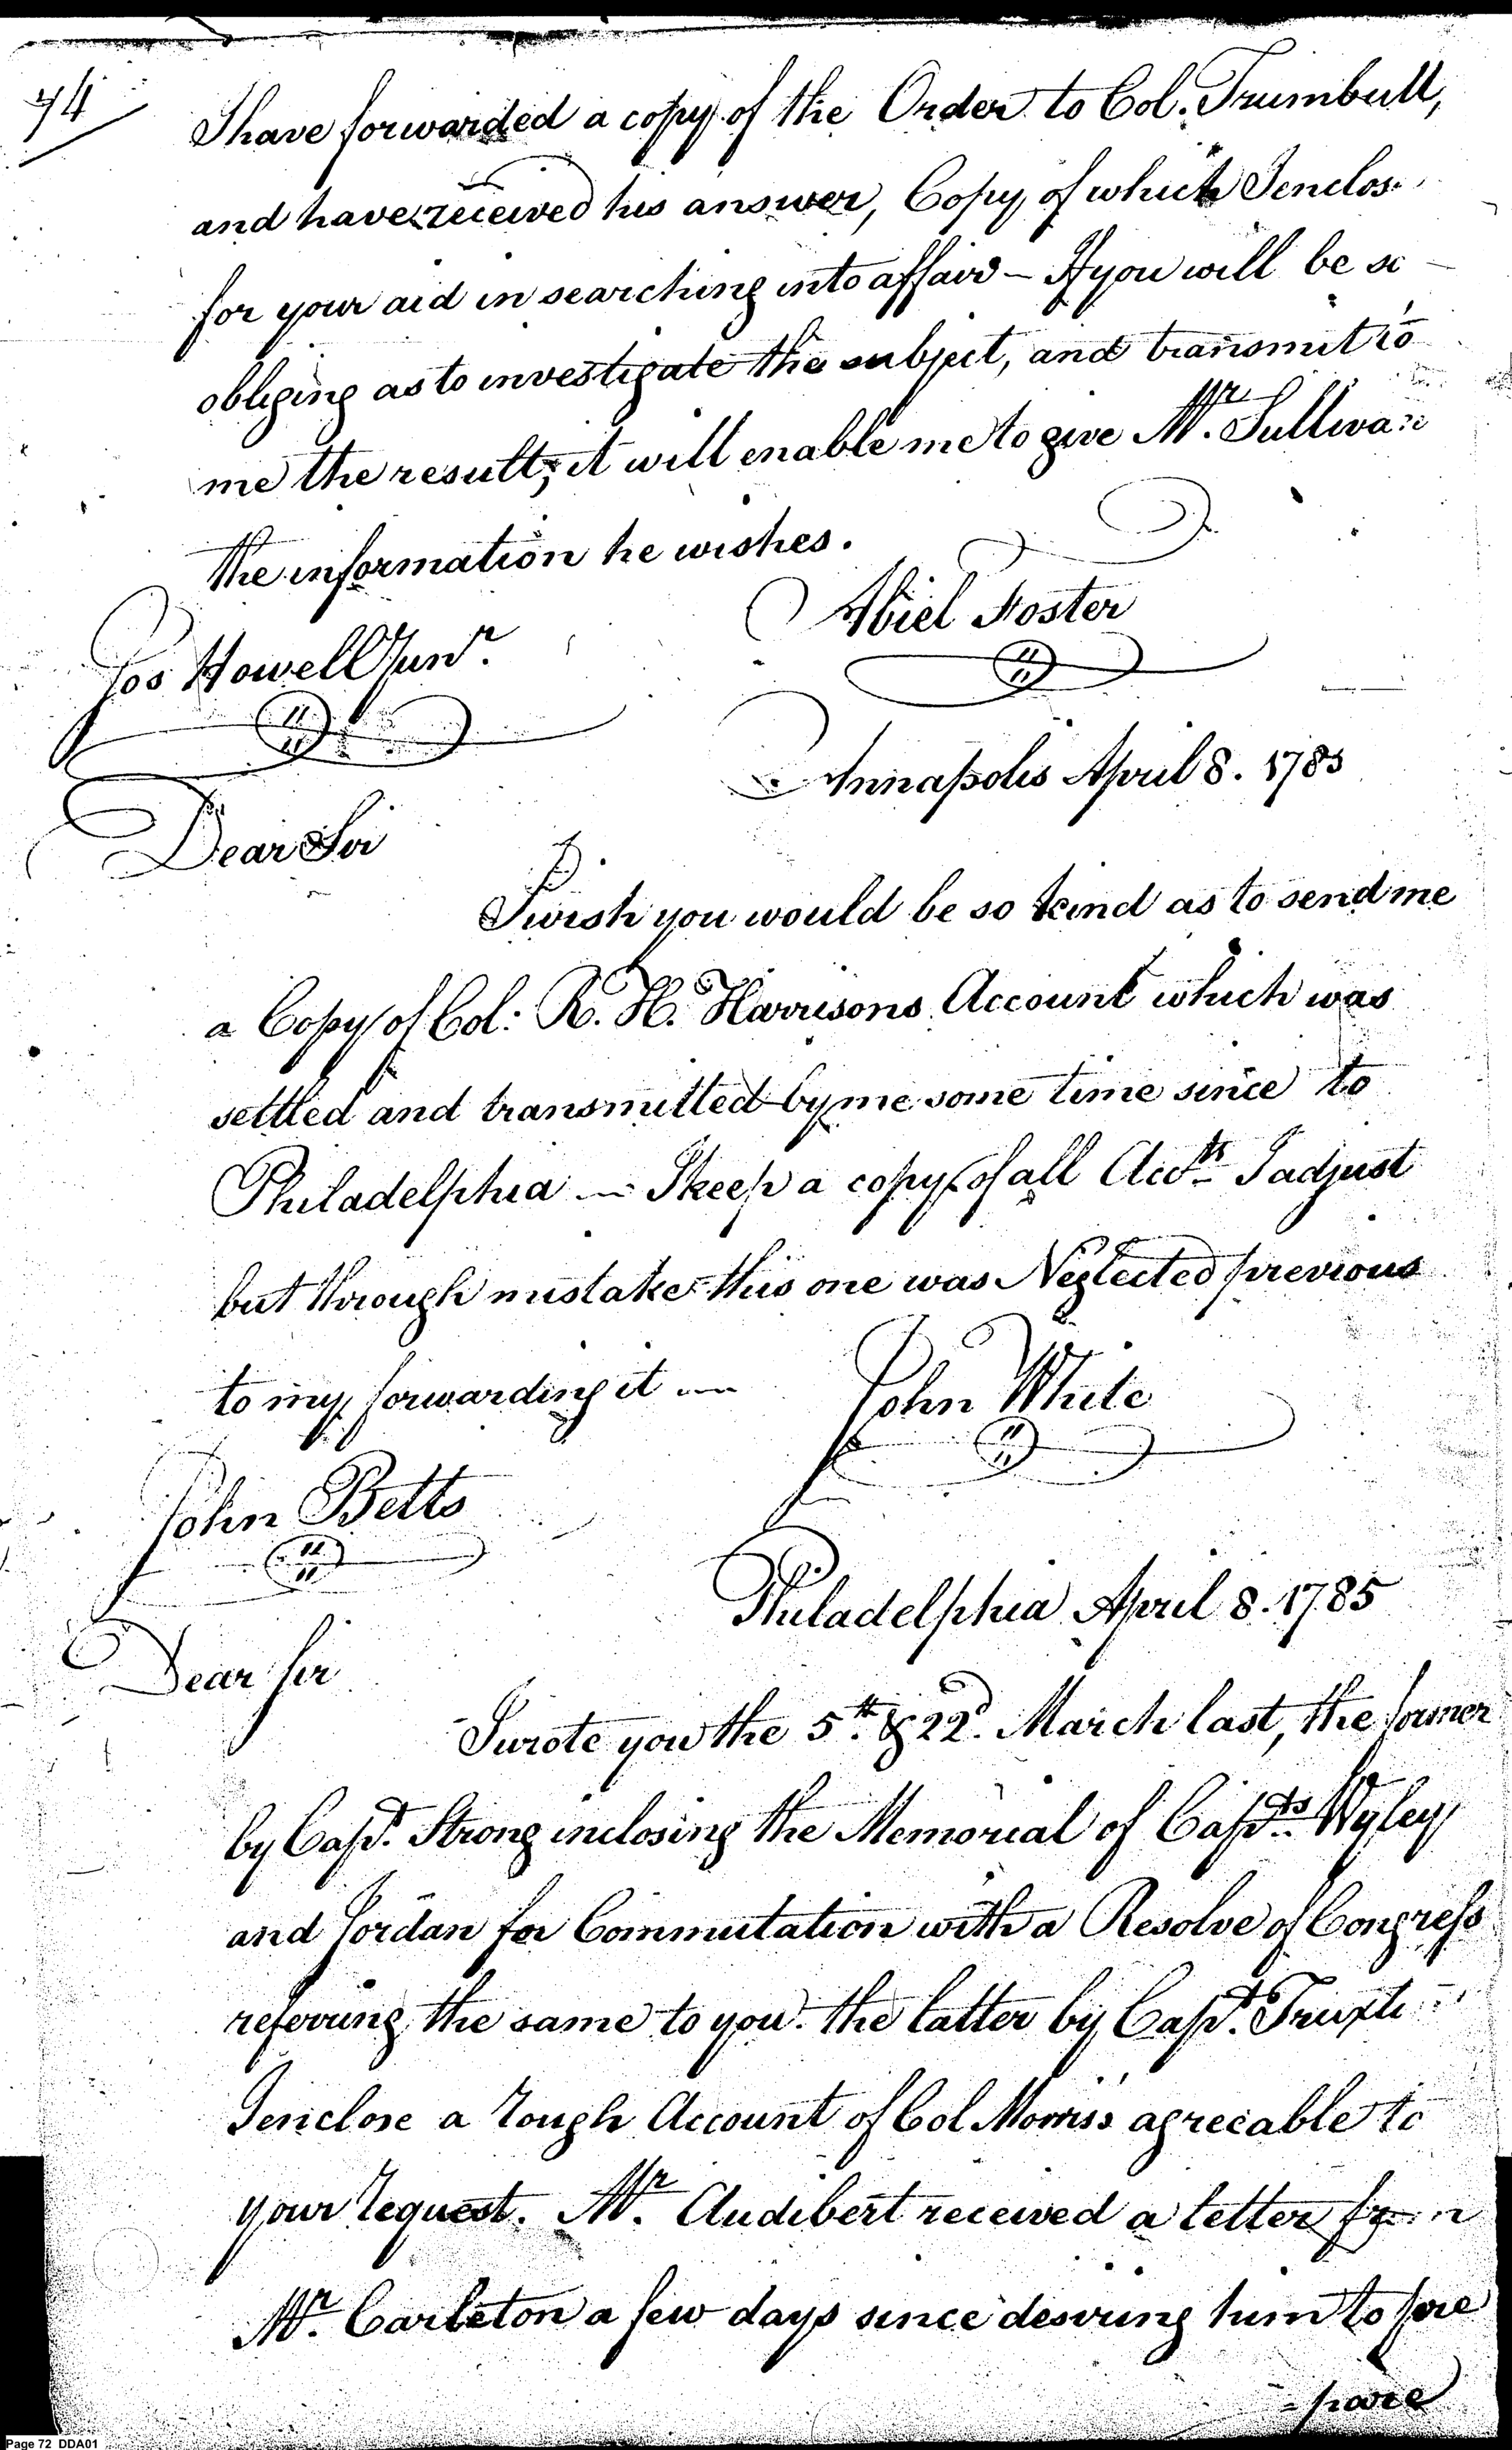 74
I have forwarded a copy of the Order to Col. Trumbull,
and have received his answer, Copy of which I enclos
for your aid in searching into affair – If you will be so
obliging as to investigate the subject, and transmit to
me the result, it will enable me to give Mr. Sullivan
the information he wishes.
Abiel Foster
Jos Howell Junr.
Annapolis April 8. 1785
Dear Sir
I wish you would be so kind as to send me
a Copy of Col: R. H. Harrisons Account which was
settled and transmitted by me some time since to
Philadelphia — I keep a copy of all Accts I adjust
but through mistake this one was Neglected previous
to my forwarding it —
John White
John Betts
Philadelphia April 8. 1785
Dear Sir
I wrote you the 5th. & 22d. March last, the former
by Capt. Strong inclosing the Memorial of Capts. Wyley
and Jordan for Commutation with a Resolve of Congress
referring the same to you. the latter by Capt.
I enclose a rough Account of Col Morris's agreeable to
your request. Mr. Audibert received a letter from
Mr. Carleton a few days since desiring him to pre
-pare
Page 72 DDA01